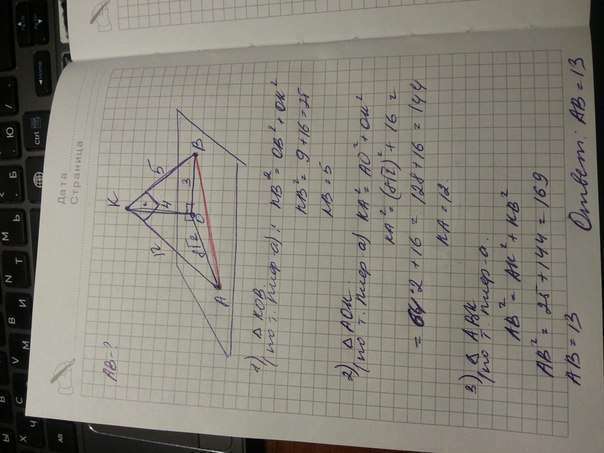 Дата
Страница
AB-?
K
12
4
5
8√2
O
3
B
A
1) △ KOB
/по т. Пифа-а/: KB² = OB² + OK²
KB² = 9 + 16 = 25
KB = 5
2) △ AOK
/по т. Пифа-а/ KA² = AO² + OK²
KA² = (8√2)² + 16 =
= 64·2 + 16 = 128 + 16 = 144
KA = 12
3) △ ABK
/по т. Пифа-а.
AB² = AK² + KB²
AB² = 25 + 144 = 169
AB = 13
Ответ: AB = 13